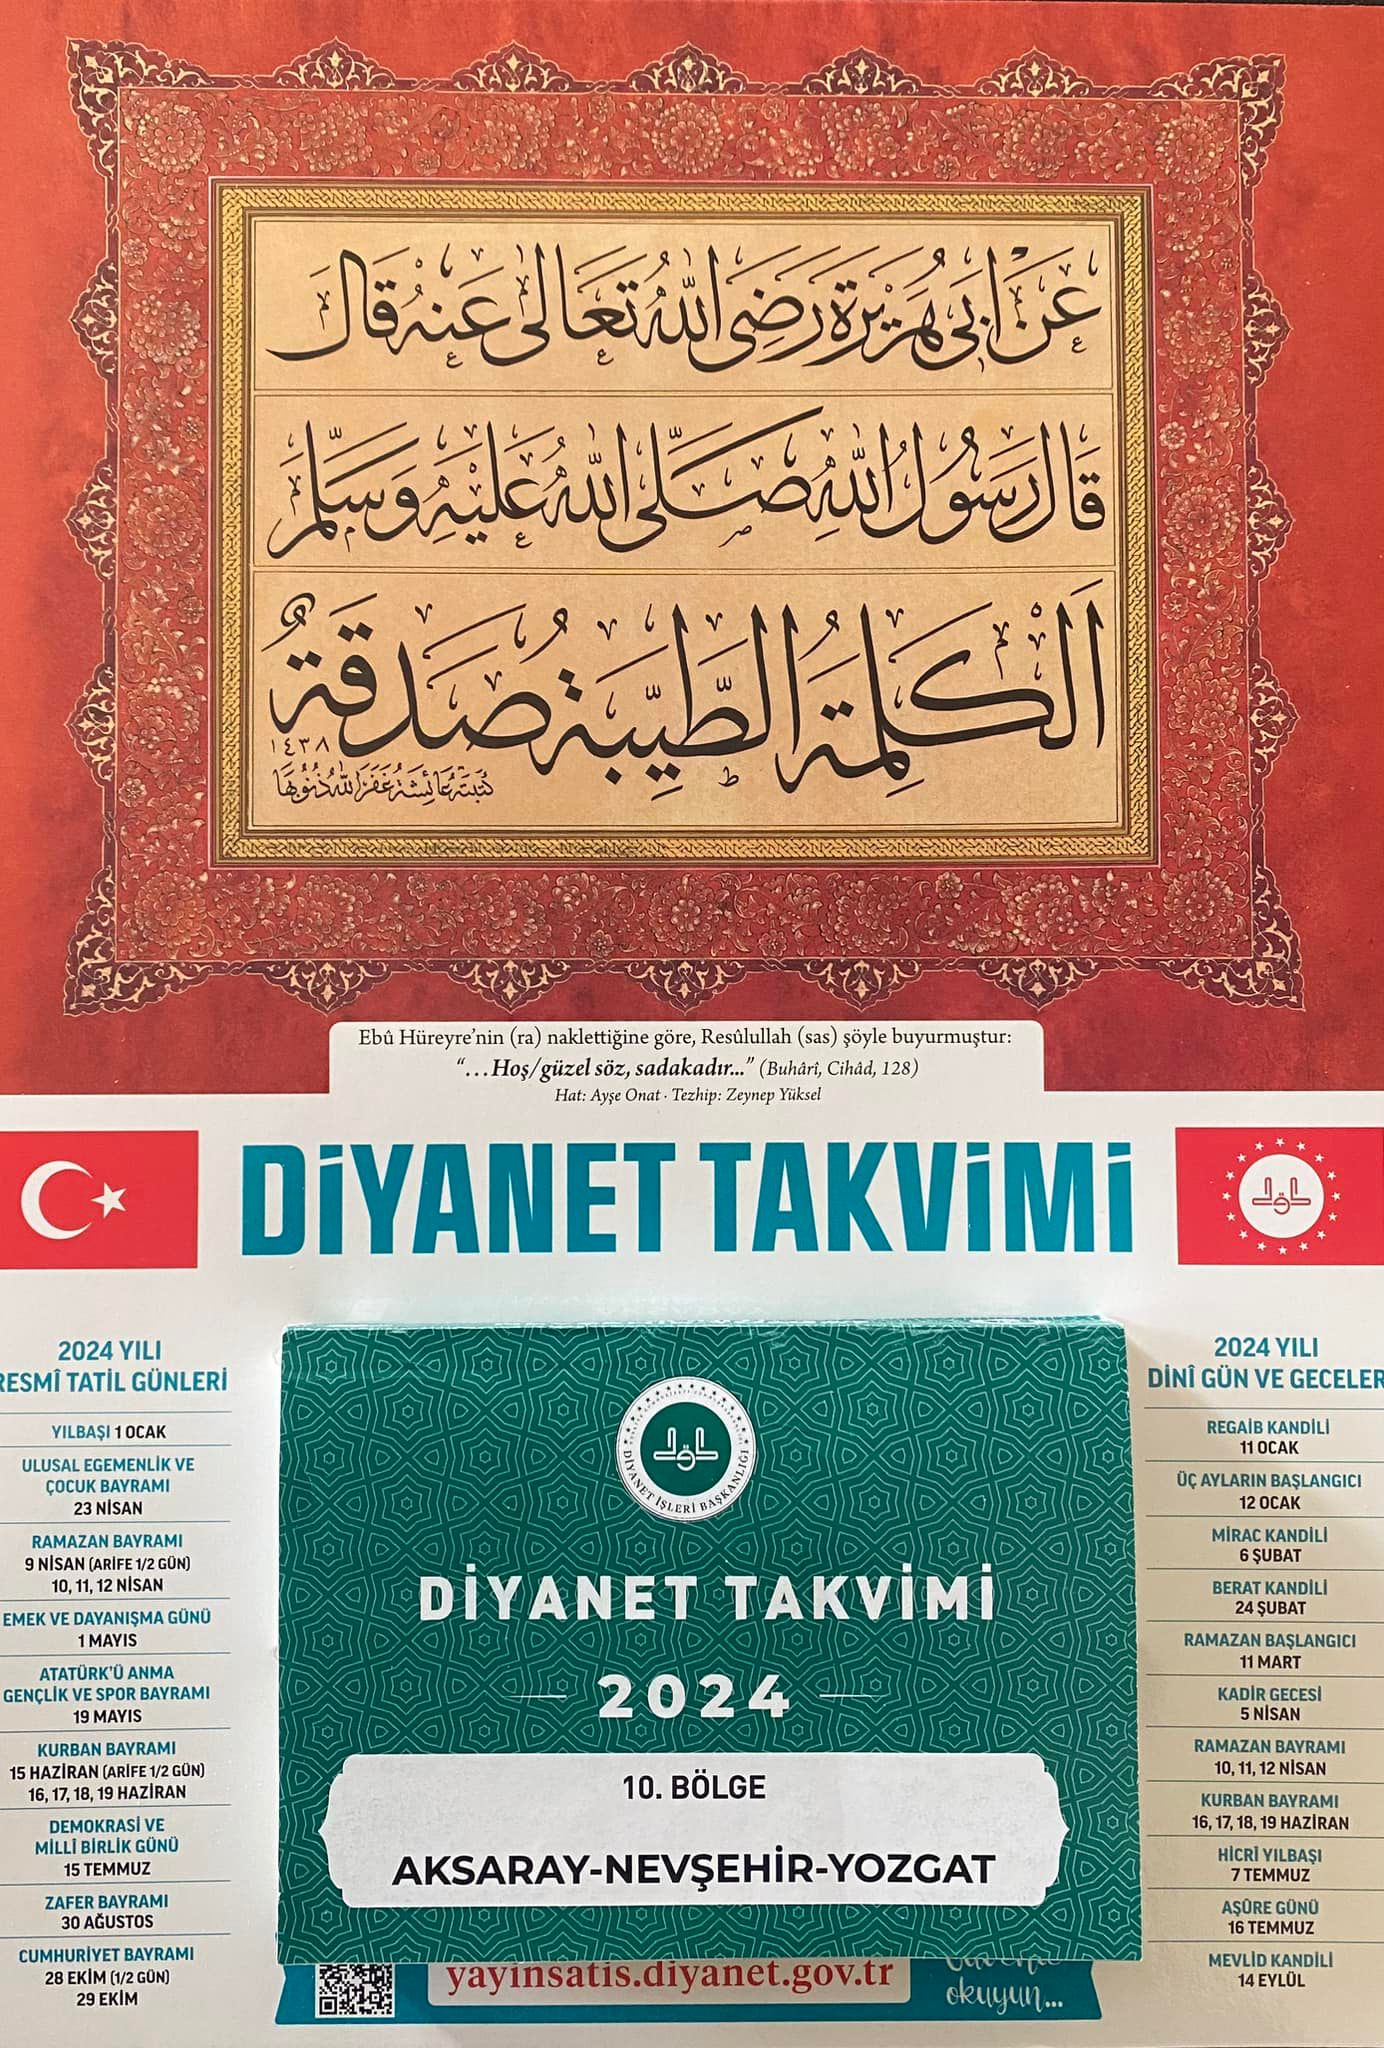 عَنْ اَبِى هُرَيْرَةَ رَضِىَ اللّٰهُ تَعَالٰى عَنْهُ قَالَ
قَالَ رَسُولُ اللّٰهِ صَلَّى اللّٰهُ عَلَيْهِ وَسَلَّمَ
اَلْكَلِمَةُ الطَّيِّبَةُ صَدَقَةٌ
١٤٣٨
كتبته عائشة غفر الله ذنوبها
Ebû Hüreyre'nin (ra) naklettiğine göre, Resûlullah (sas) şöyle buyurmuştur:
"…Hoş/güzel söz, sadakadır..." (Buhârî, Cihâd, 128)
Hat: Ayşe Onat · Tezhip: Zeynep Yüksel
DİYANET TAKVİMİ
2024 YILI
RESMÎ TATİL GÜNLERİ
YILBAŞI 1 OCAK
ULUSAL EGEMENLİK VE
ÇOCUK BAYRAMI
23 NİSAN
RAMAZAN BAYRAMI
9 NİSAN (ARİFE 1/2 GÜN)
10, 11, 12 NİSAN
EMEK VE DAYANIŞMA GÜNÜ
1 MAYIS
ATATÜRK'Ü ANMA
GENÇLİK VE SPOR BAYRAMI
19 MAYIS
KURBAN BAYRAMI
15 HAZİRAN (ARİFE 1/2 GÜN)
16, 17, 18, 19 HAZİRAN
DEMOKRASİ VE
MİLLÎ BİRLİK GÜNÜ
15 TEMMUZ
ZAFER BAYRAMI
30 AĞUSTOS
CUMHURİYET BAYRAMI
28 EKİM (1/2 GÜN)
29 EKİM
DİYANET İŞLERİ BAŞKANLIĞI
DİYANET TAKVİMİ
2024
10. BÖLGE
AKSARAY-NEVŞEHİR-YOZGAT
yayinsatis.diyanet.gov.tr
okuyun...
2024 YILI
DİNÎ GÜN VE GECELER
REGAİB KANDİLİ
11 OCAK
ÜÇ AYLARIN BAŞLANGICI
12 OCAK
MİRAC KANDİLİ
6 ŞUBAT
BERAT KANDİLİ
24 ŞUBAT
RAMAZAN BAŞLANGICI
11 MART
KADİR GECESİ
5 NİSAN
RAMAZAN BAYRAMI
10, 11, 12 NİSAN
KURBAN BAYRAMI
16, 17, 18, 19 HAZİRAN
HİCRÎ YILBAŞI
7 TEMMUZ
AŞÛRE GÜNÜ
16 TEMMUZ
MEVLİD KANDİLİ
14 EYLÜL